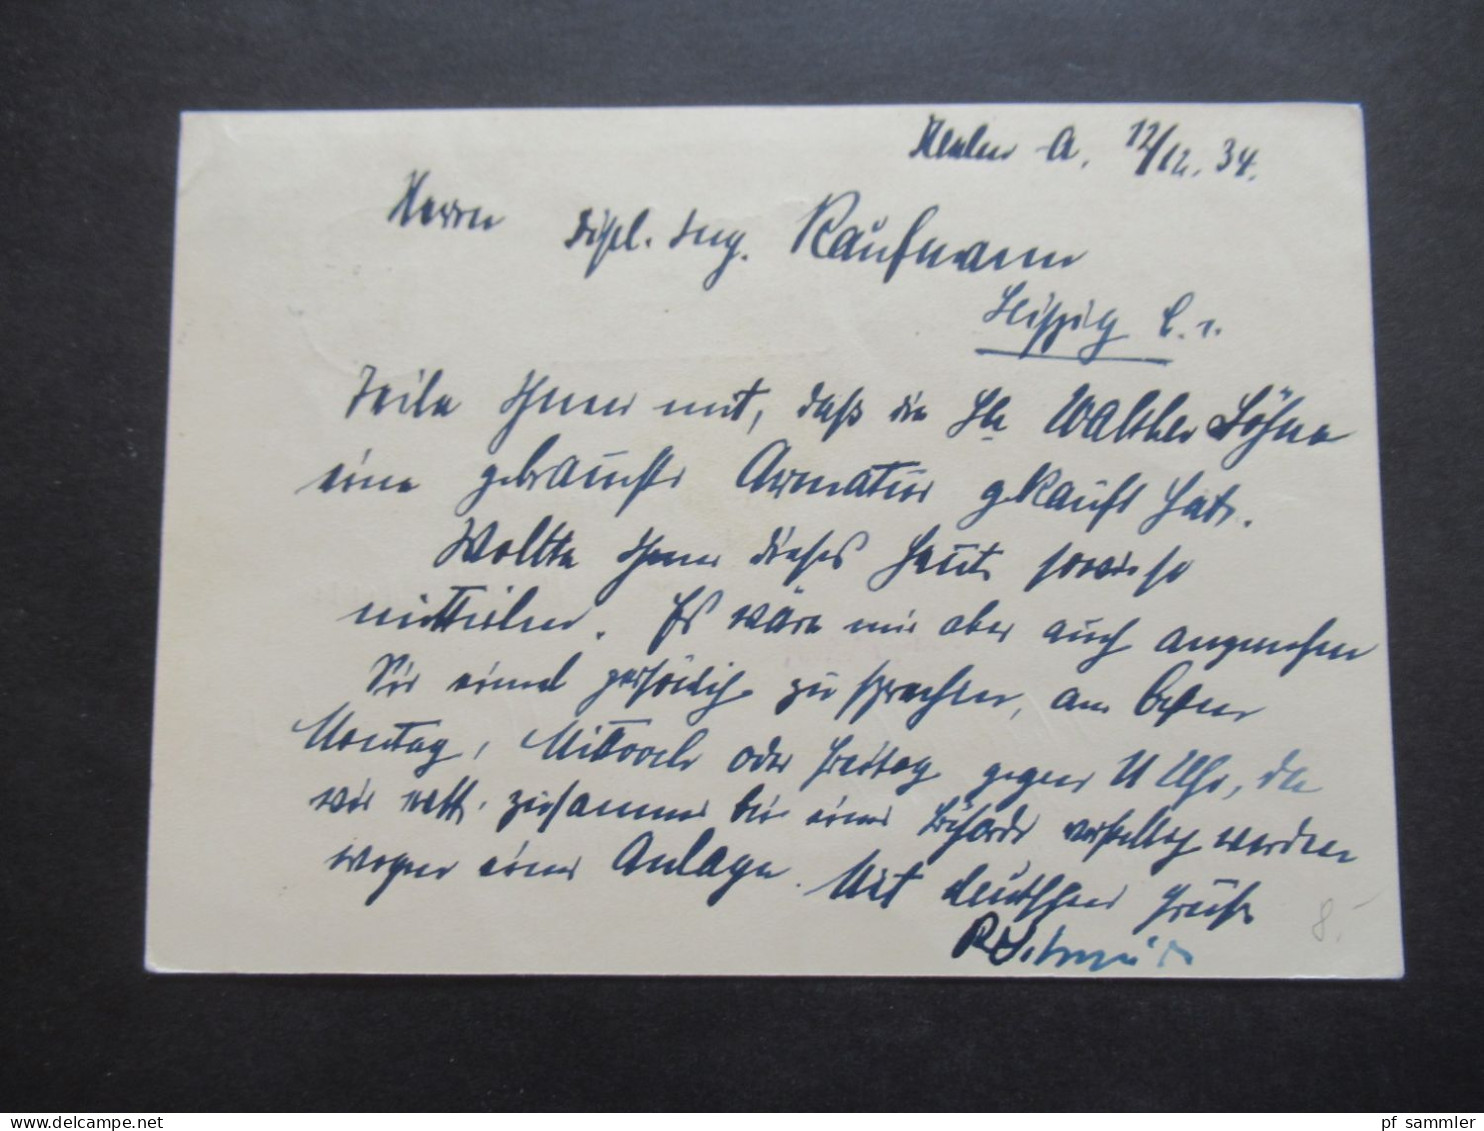 A. 12/12. 34.
Herrn Dipl. Ing. Kaufmann
Leipzig C. 1.
Teile Ihnen mit, daß die Fa Walther Söhne
eine gebrauchte Armatur gekauft hat.
Wollte Ihnen dieses heute sowieso
mitteilen. Es wäre mir aber auch angenehm
Sie einmal persönlich zu sprechen, am besten
Montag, Mittwoch oder Freitag gegen 11 Uhr, da
wir evtl. zusammen bei einer Behörde vorstellig werden
wegen einer Anlage. Mit deutschem Gruß
8.-
pf sammler
www.delcampe.net